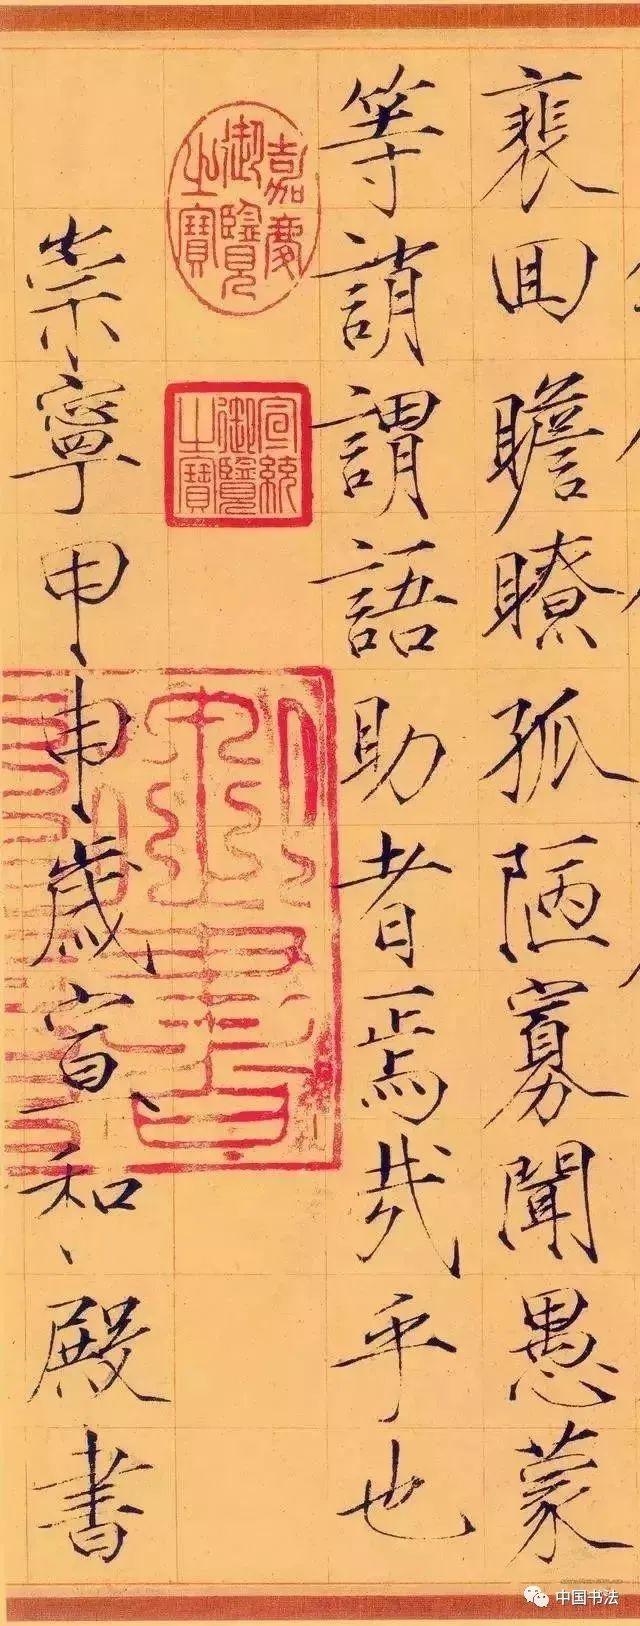 裵回瞻瞭孤陋寡聞愚蒙
等誚謂語助者焉哉乎也
嘉慶御覽之寶
宣統御覽之寶
崇寧甲申歲宣和殿書
中国书法